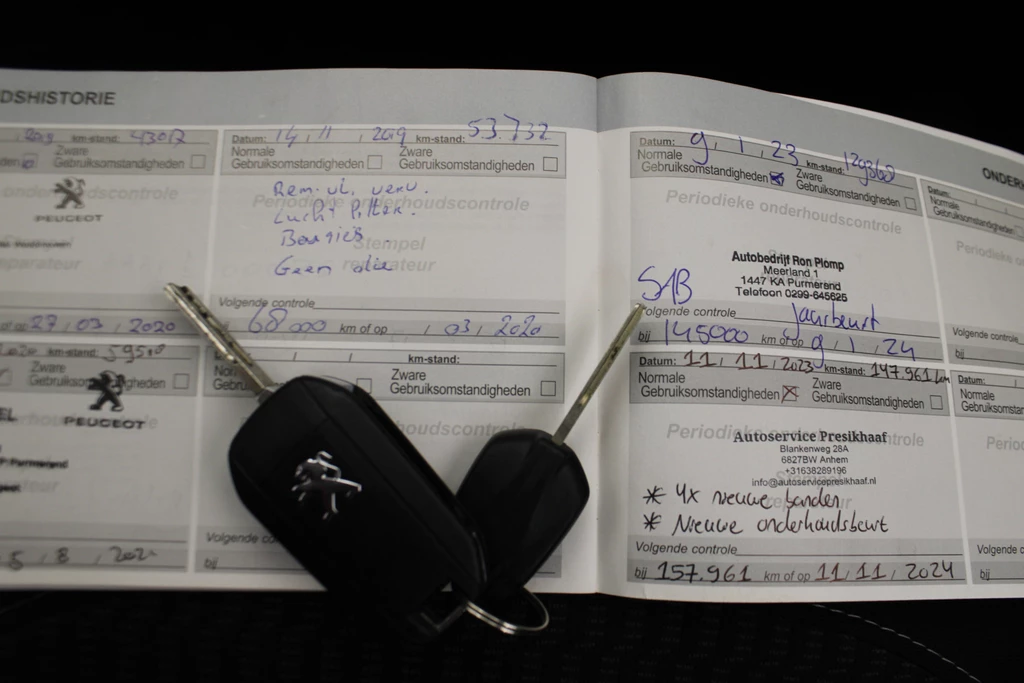 DSHISTORIE
2019 km-stand: 43017
Zware
Gebruiksomstandigheden
PEUGEOT
27, 03, 2020
km-stand: 59510
Zware
Gebruiksomstandigheden
PEUGEOT
5, 8, 2021
Datum: 14, 11, 2019 km-stand: 53.732
Normale
Gebruiksomstandigheden
Zware
Gebruiksomstandigheden
Periodieke onderhoudscontrole
Rem. vl. verv.
Lucht filter.
Bougies.
Geen olie
Stempel
reparateur
Volgende controle
68000 km of op , 03, 2020
km-stand:
Zware
Gebruiksomstandigheden
houdscontrole
Volgende co
bij
ONDER
Datum: 9, 1, 23 km-stand: 129360
Normale
Gebruiksomstandigheden
Zware
Gebruiksomstandigheden
Periodieke onderhoudscontrole
Autobedrijf Ron Plomp
Meerland 1
1447 KA Purmerend
Telefoon 0299-645625
SAB
Volgende controle Jaarbeurt
bij 145000 km of op 9, 1, 24
Datum: 11, 11, 2023 km-stand: 147.961 km
Normale
Gebruiksomstandigheden
Zware
Gebruiksomstandigheden
Periodieke onderhoudscontrole
Autoservice Presikhaaf
Blankenweg 28A
6827BW Arnhem
+31638289196
info@autoservicepresikhaaf.nl
* 4x nieuwe banden
* Nieuwe onderhoudsbeurt
Volgende controle
bij 157.961 km of op 11, 11, 2024
Datum:
Normale
Gebruiksomsta
Periodieke
Volgende controle
bij
Datum:
Normale
Gebruiksomsta
Perio
Volgende c
bij